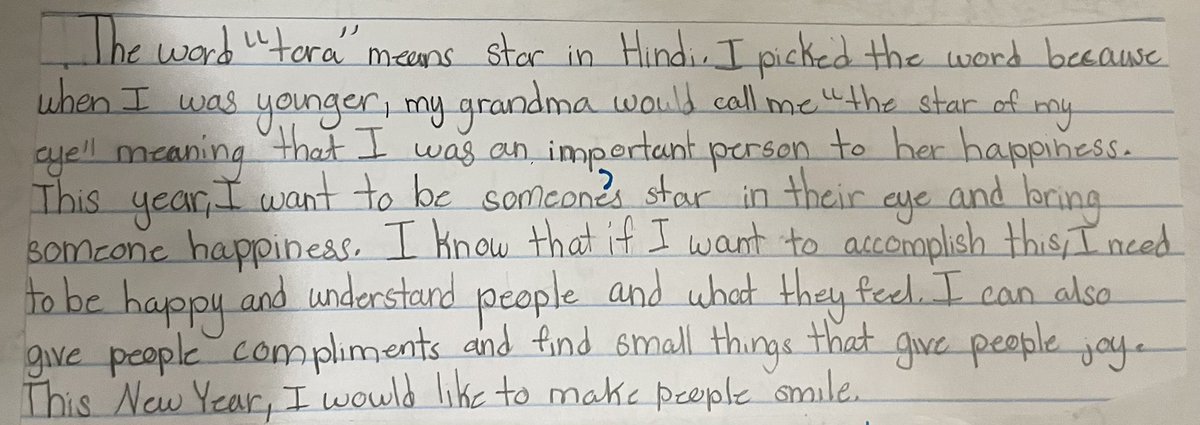 The word "tara" means star in Hindi. I picked the word because
when I was younger, my grandma would call me "the star of my
eye" meaning that I was an important person to her happiness.
This year, I want to be someone's star in their eye and bring
someone happiness. I know that if I want to accomplish this, I need
to be happy and understand people and what they feel. I can also
give people compliments and find small things that give people joy.
This New Year, I would like to make people smile.